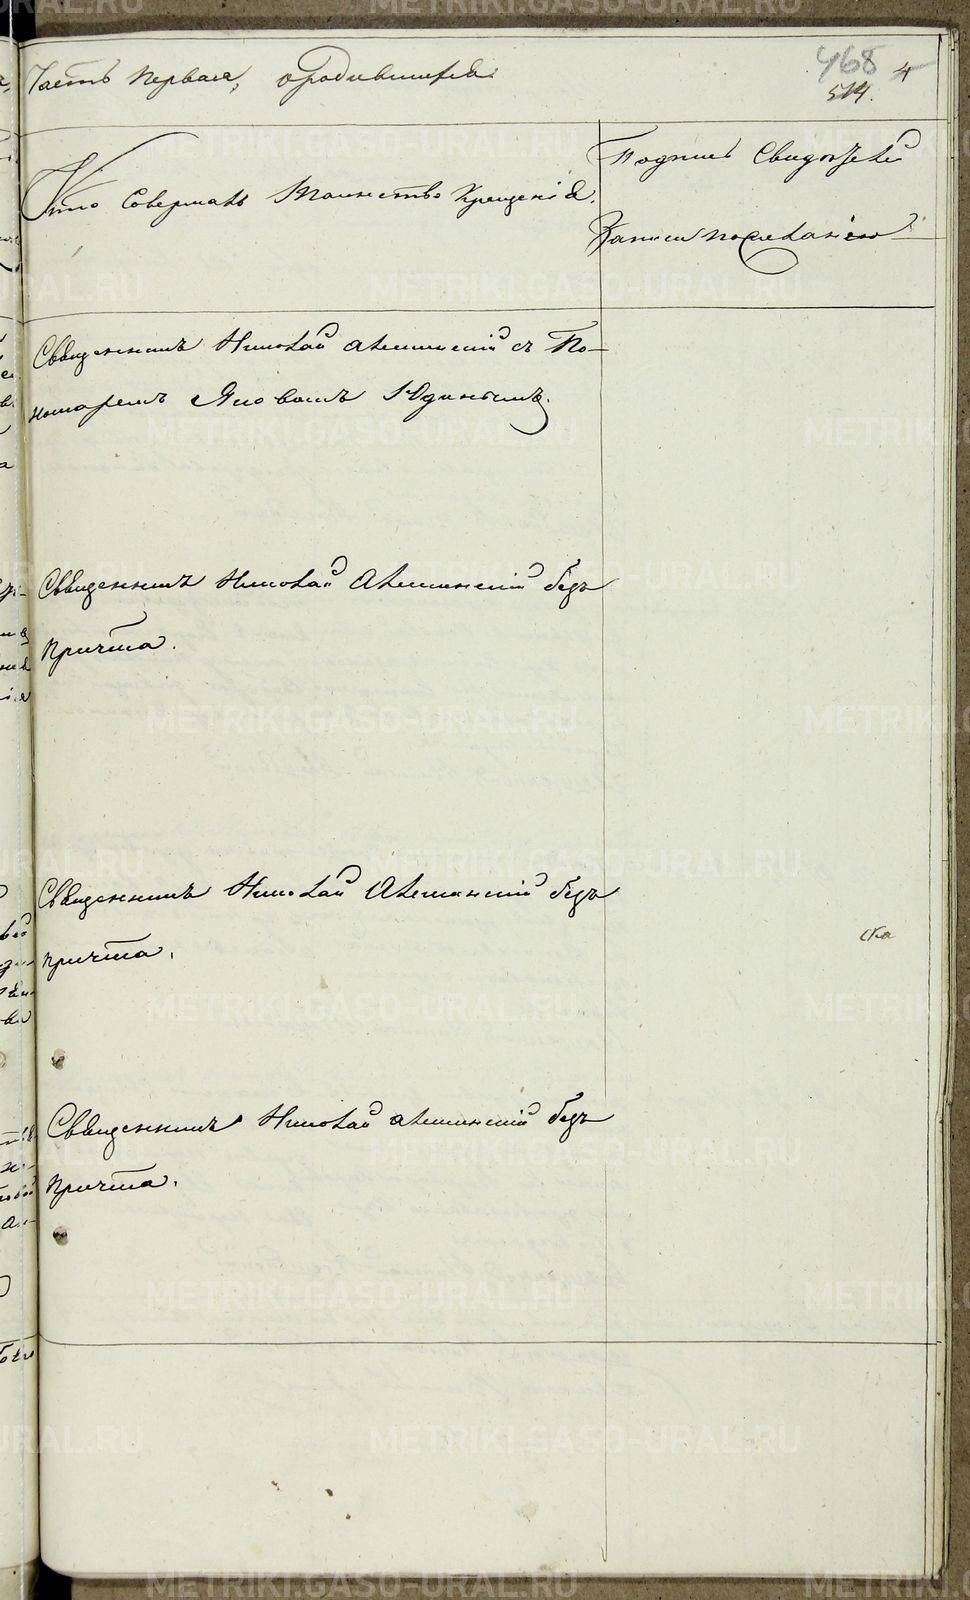 Часть первая, о родившихся
468 4
514.
Кто совершалъ Таинство Крещенія.
Подпись Свидѣтелей
Записи по желанію
Священникъ Николай Алешинскій съ По-
номаремъ Яковомъ Юдинымъ.
Священникъ Николай Алешинскій безъ
причта.
Священникъ Николай Алешинскій безъ
причта.
Священникъ Николай Алешинскій безъ
причта.
METRIKI.GASO-URAL.RU